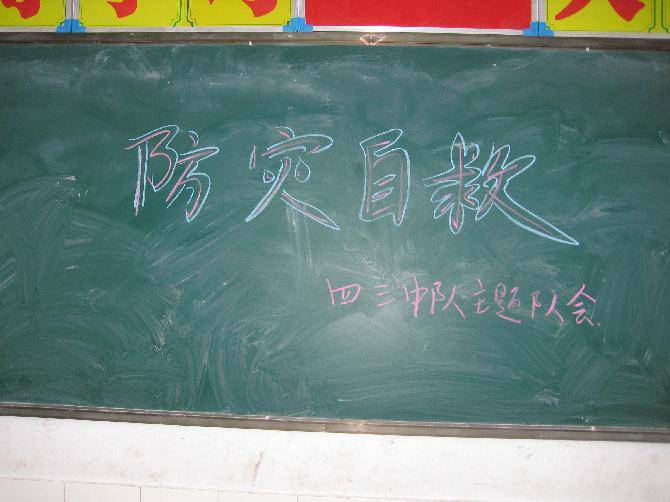 防灾自救
四三中队主题队会